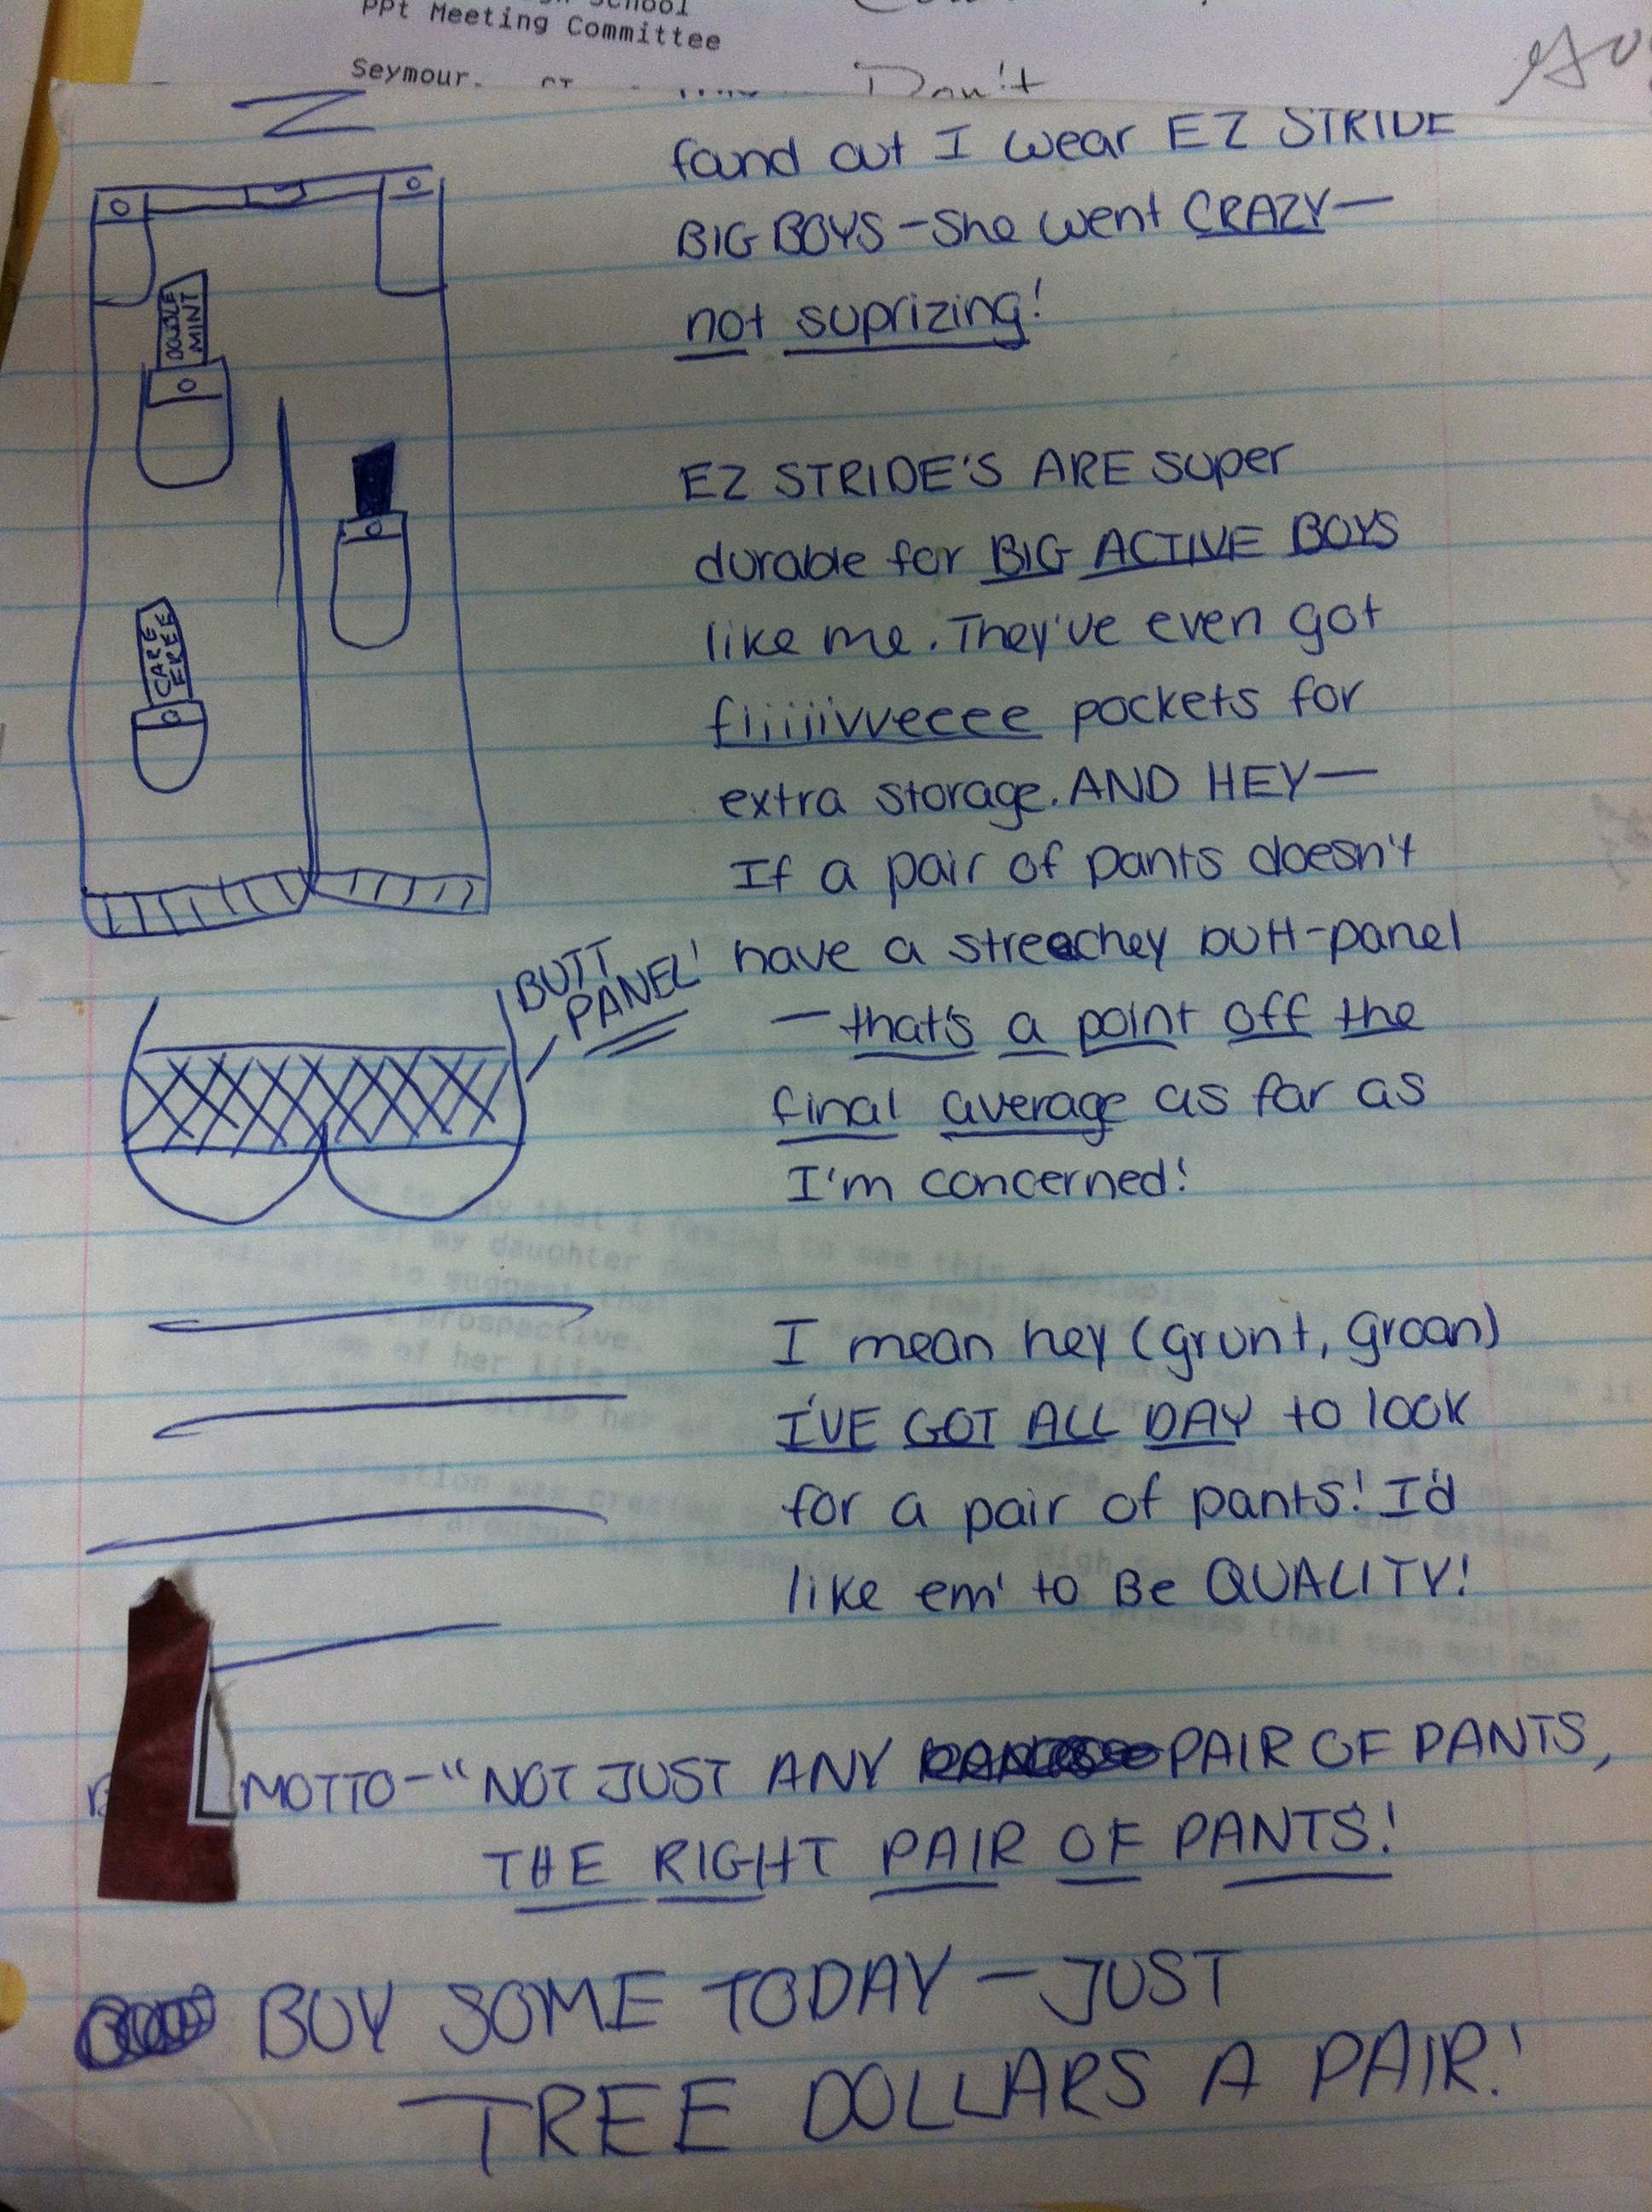 School
PPt Meeting Committee
Seymour, CT
Don't
found out I wear EZ STRIDE
BIG BOYS - She went CRAZY -
not suprizing!
DOUBLE
MINT
EZ STRIDE'S ARE super
durable for BIG ACTIVE BOYS
like me. They've even got
fiiiiivveeee pockets for
extra storage. AND HEY -
If a pair of pants doesn't
have a streechey butt-panel
- that's a point off the
final average as far as
I'm concerned!
CARE
FREE
BUTT
PANEL!
I mean hey (grunt, groan)
I'VE GOT ALL DAY to look
for a pair of pants! I'd
like em' to Be QUALITY!
MOTTO - "NOT JUST ANY PAIR OF PANTS,
THE RIGHT PAIR OF PANTS!
BUY SOME TODAY - JUST
TREE DOLLARS A PAIR!